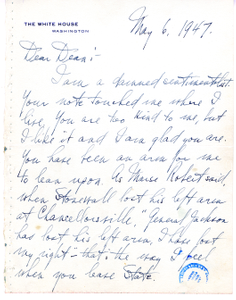 THE WHITE HOUSE
WASHINGTON
May 6, 1947.
Dear Dean:-
I am a damned sentimentalist.
Your note touched me where I
live. You are too kind to me but
I like it and I am glad you are.
You have been an arm for me
to lean upon. As Marse Robert said
when Stonewall lost his left arm
at Chancellorsville, "General Jackson
has lost his left arm, I have lost
my right" - that's the way I feel
when you leave State.